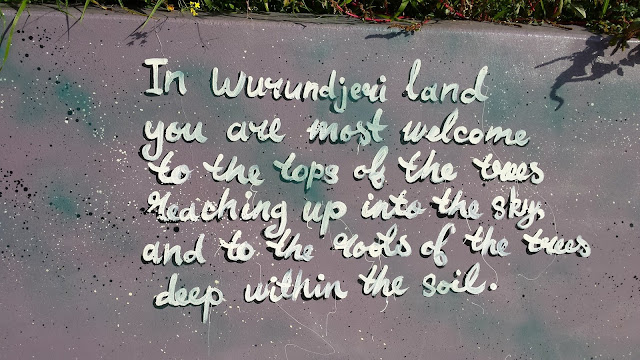 In Wurundjeri land
you are most welcome
to the tops of the trees
Reaching up into the sky
and to the roots of the trees
deep within the soil.